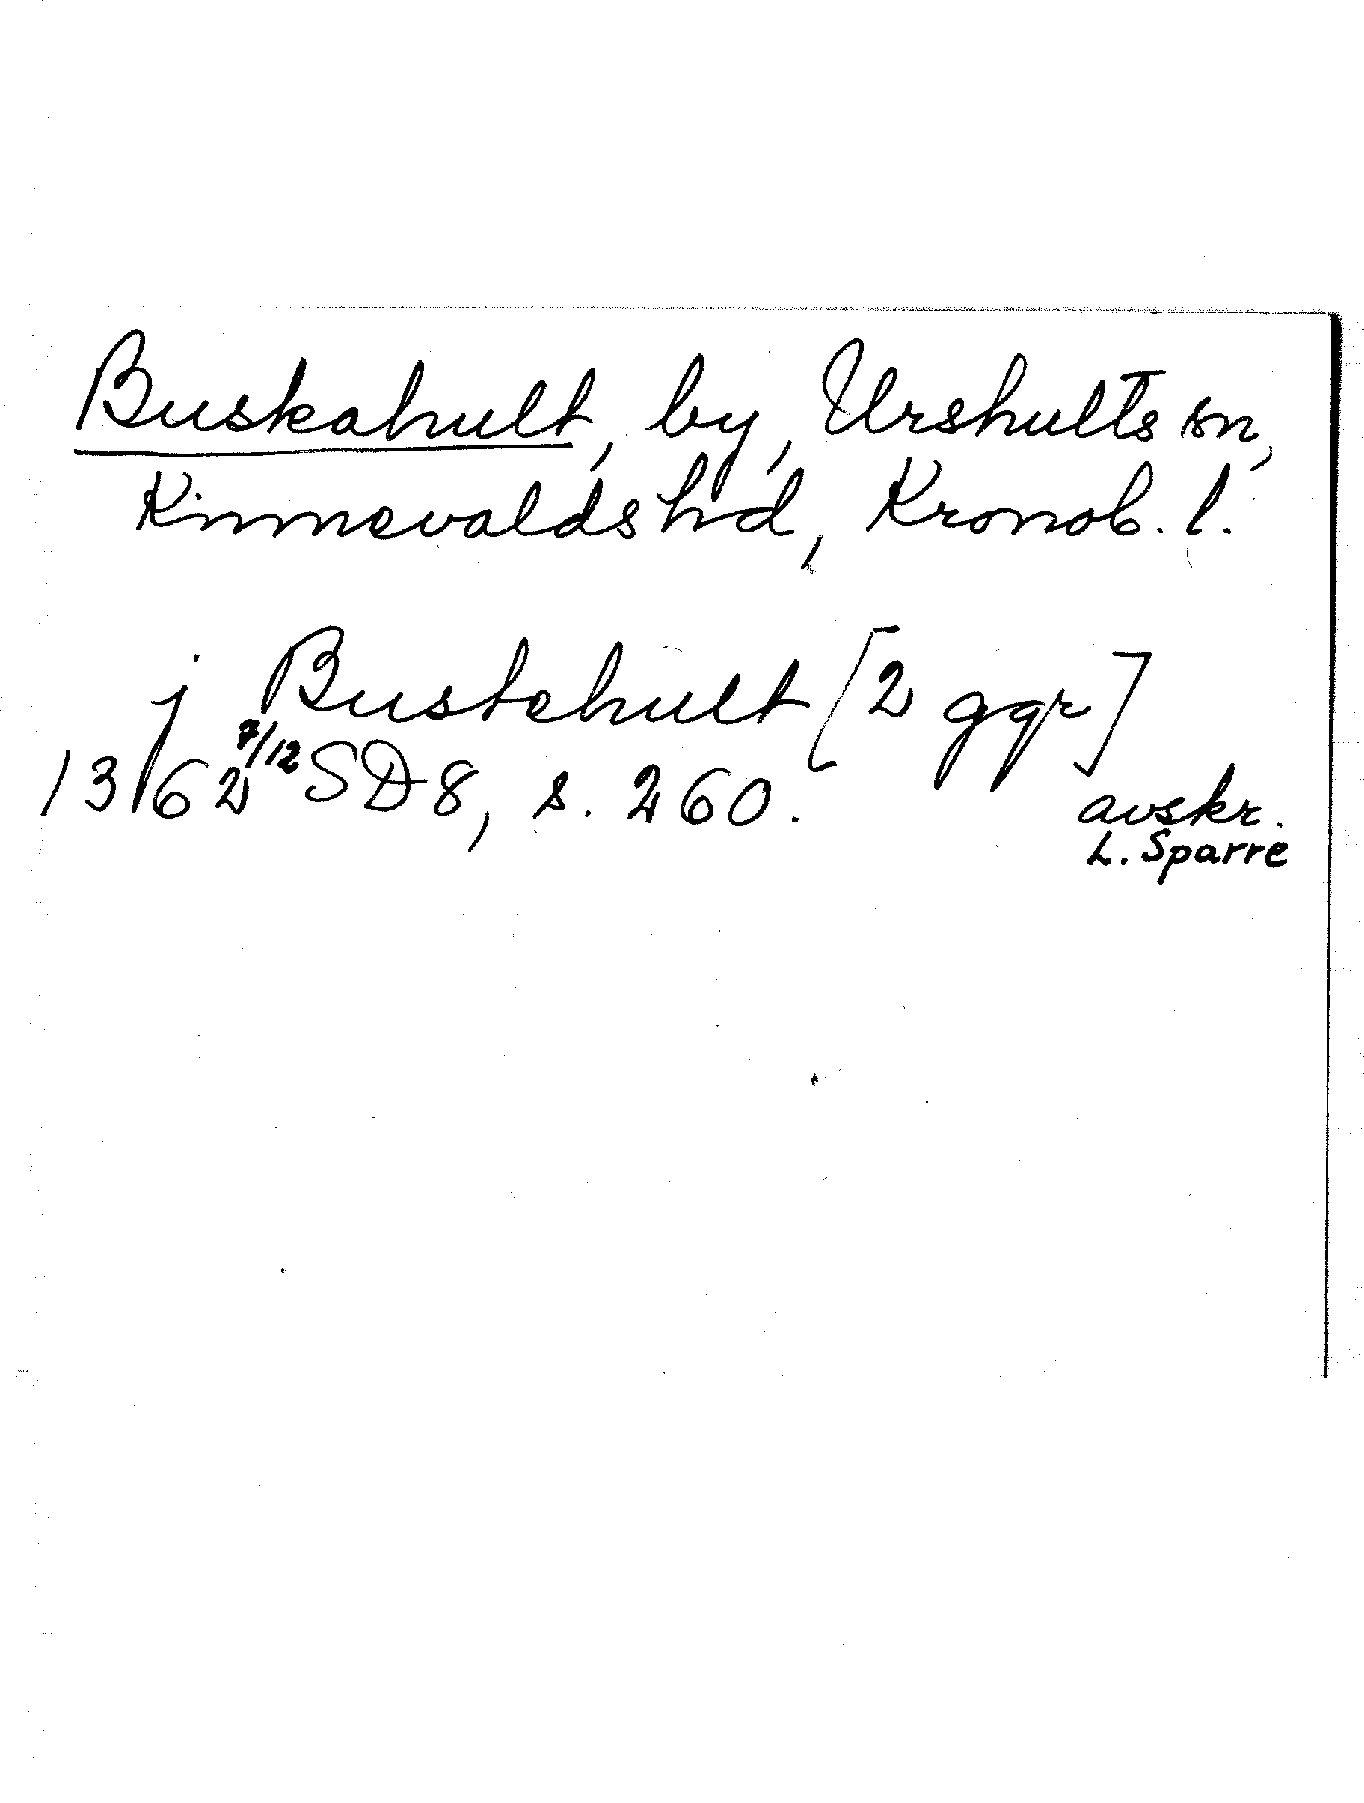 Buskahult, by, Urshults sn,
Kinnevalds hd, Kronob. l.
j Bustehult [2 ggr]
1362 7/12 SD 8, s. 260.
avskr.
L. Sparre